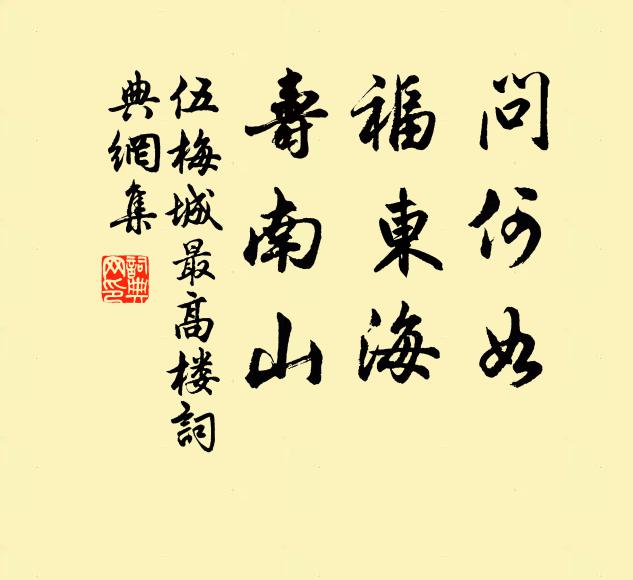 問何如
福東海
壽南山
伍梅城最高楼詞
典網集
詞典
网印